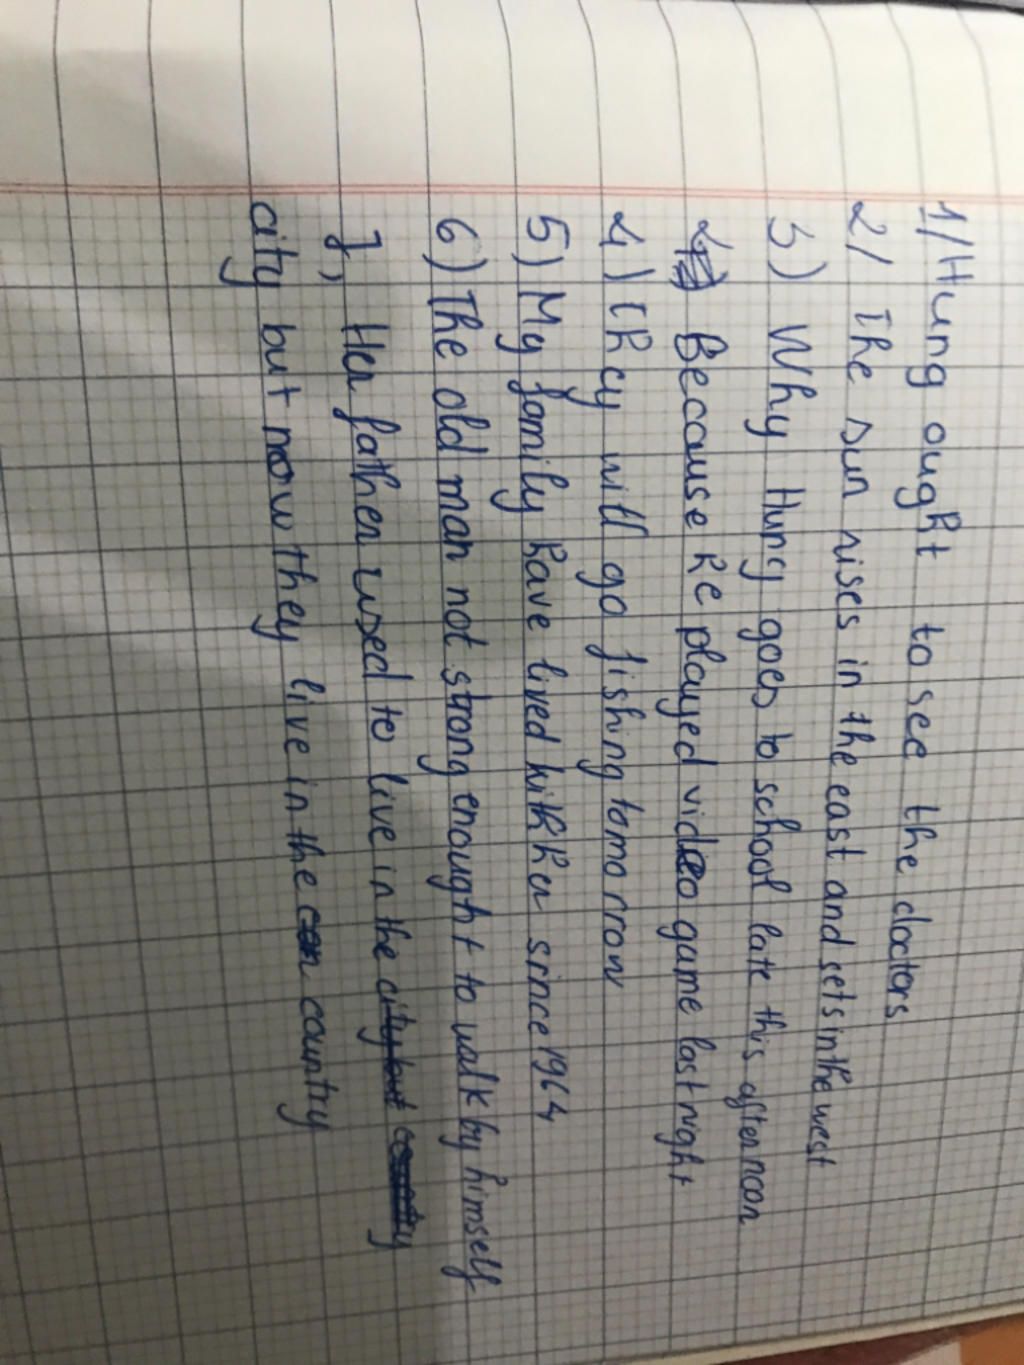 1/ Hung ought to see the doctors
2/ The sun rises in the east and sets in the west
3) Why Hung goes to school late this afternoon
Because he played video game last night
4) They will go fishing tomorrow
5) My family have lived hither since 1964
6) The old man not strong enought to walk by himself
7, Her father used to live in the
city but now they live in the country